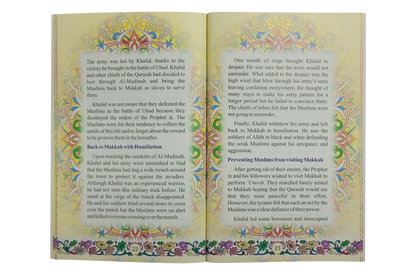 The army was led by Khalid, thanks to the
victory he brought in the battle of Uhud. Khalid
and other chiefs of the Quraish had decided to
loot through Al-Madinah and bring the
Muslims back to Makkah as slaves to serve
them.
Khalid was not aware that they defeated the
Muslims in the battle of Uhud because they
disobeyed the orders of the Prophet ﷺ. The
Muslims were for their tendency to collect the
spoils of this life and to forget about the reward
to be given to them in the hereafter.
Back to Makkah with Humiliation
Upon reaching the outskirts of Al-Madinah,
Khalid and his army were astounded to find
that the Muslims had dug a wide trench around
the town to protect it against the invaders.
Although Khalid was an experienced warrior,
he had not seen this military trick before. He
stood at the verge of the trench disappointed.
He and his soldiers tried several times to cross
over the trench but the Muslims were on alert
and killed everyone crossing over the trench.
22
One month of siege brought Khalid to
despair. He was sure that the town would not
surrender. What added to his despair was the
high wind that blew through his army's tents
leaving confusion everywhere. He thought of
many ways to make his army patient for a
longer period but he failed to convince them.
The chiefs of tribes felt that the Muslims were
not going to surrender.
Finally, Khalid withdrew his army and left
back to Makkah in humiliation. He saw the
soldiers of Allâh in black and white defending
the weak Muslims against his arrogance and
aggression.
Preventing Muslims from visiting Makkah
After getting rid of their enemy, the Prophet
ﷺ and his followers wished to visit Makkah to
perform 'Umrah. They marched barely armed
to Makkah hoping that the Quraish would see
that they were peaceful in their effort.
However, the tyrants felt that such an act by the
Muslims was a clear defiance of their power.
Khalid led some horsemen and intercepted
23